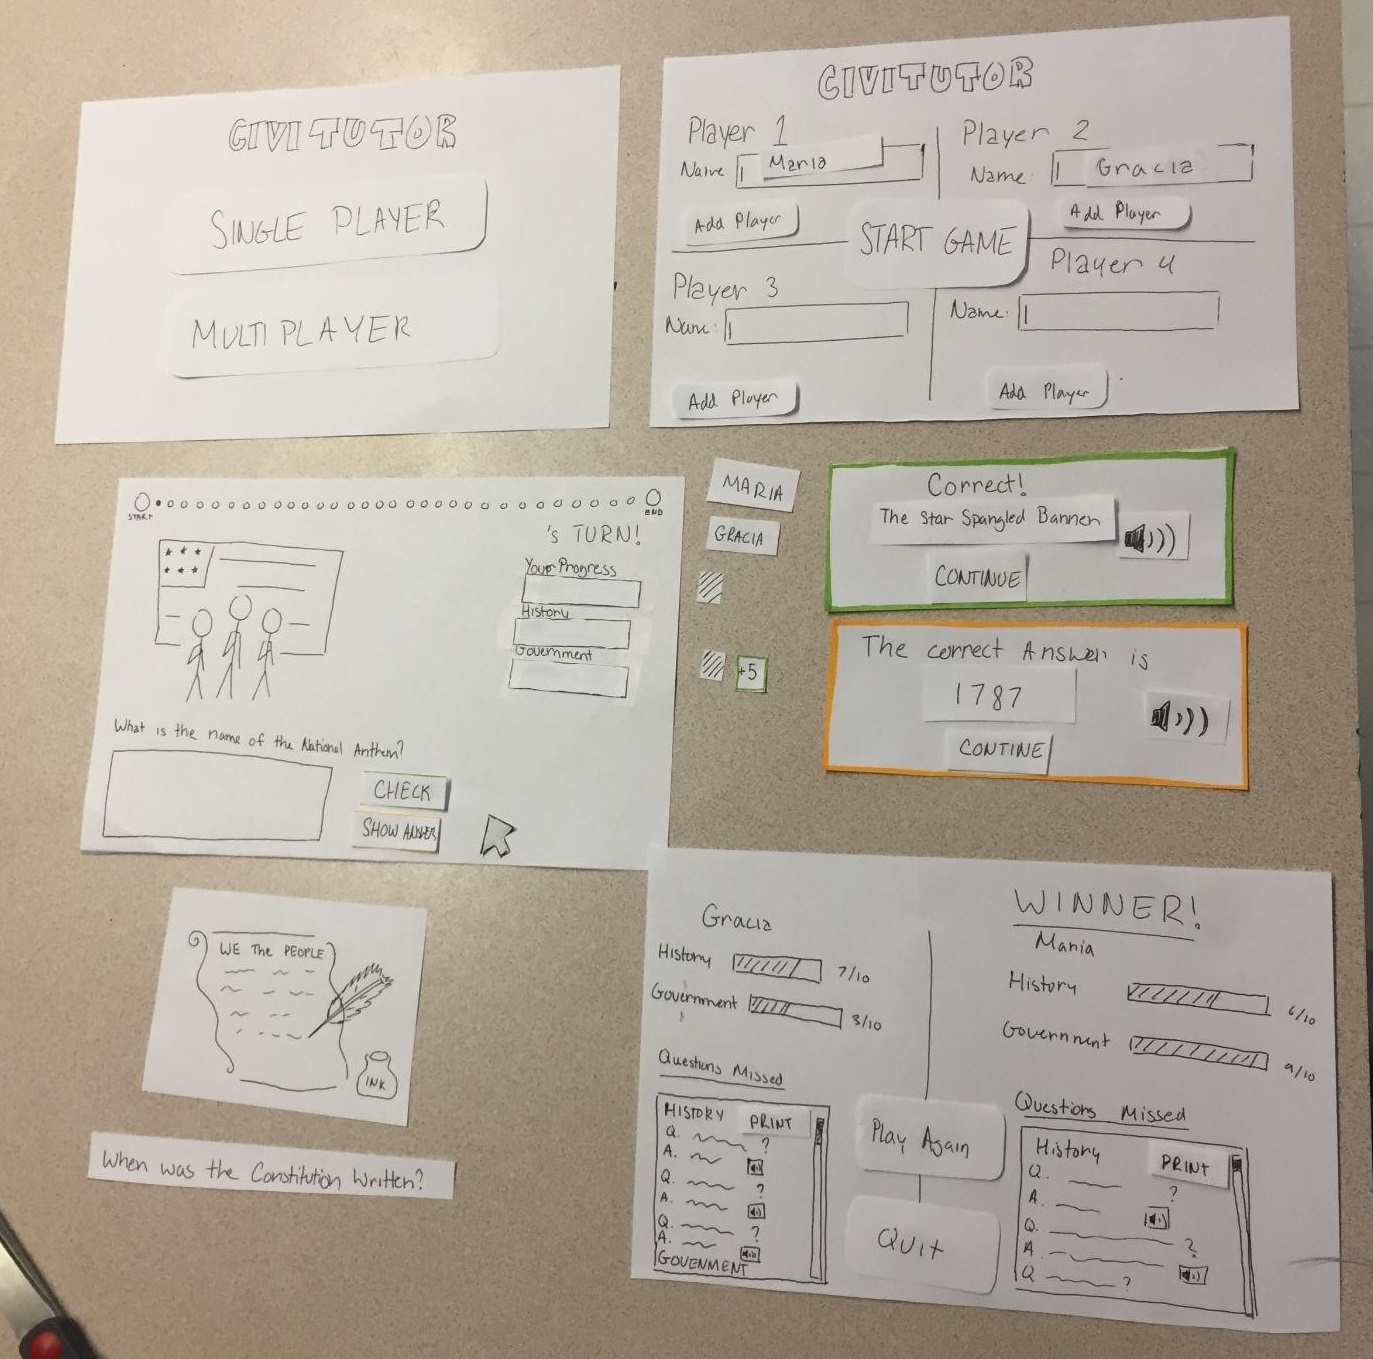 CIVITUTOR
SINGLE PLAYER
MULTIPLAYER
CIVITUTOR
Player 1
Name Maria
Add Player
Player 2
Name: Gracia
Add Player
START GAME
Player 3
Name:
Add Player
Player 4
Name:
Add Player
START
END
's TURN!
Your Progress
History
Government
What is the name of the National Anthem?
CHECK
SHOW ANSWER
MARIA
GRACIA
+5
Correct!
The Star Spangled Banner
CONTINUE
The correct Answer is
1787
CONTINE
WE The PEOPLE
INK
When was the Constitution Written?
Gracia
History 7/10
Government 3/10
Questions Missed
HISTORY PRINT
Q. ?
A.
Q. ?
A.
Q. ?
A.
GOVENMENT
Play Again
Quit
WINNER!
Maria
History 6/10
Government 9/10
Questions Missed
History PRINT
Q. ?
A.
Q. ?
A.
Q ?